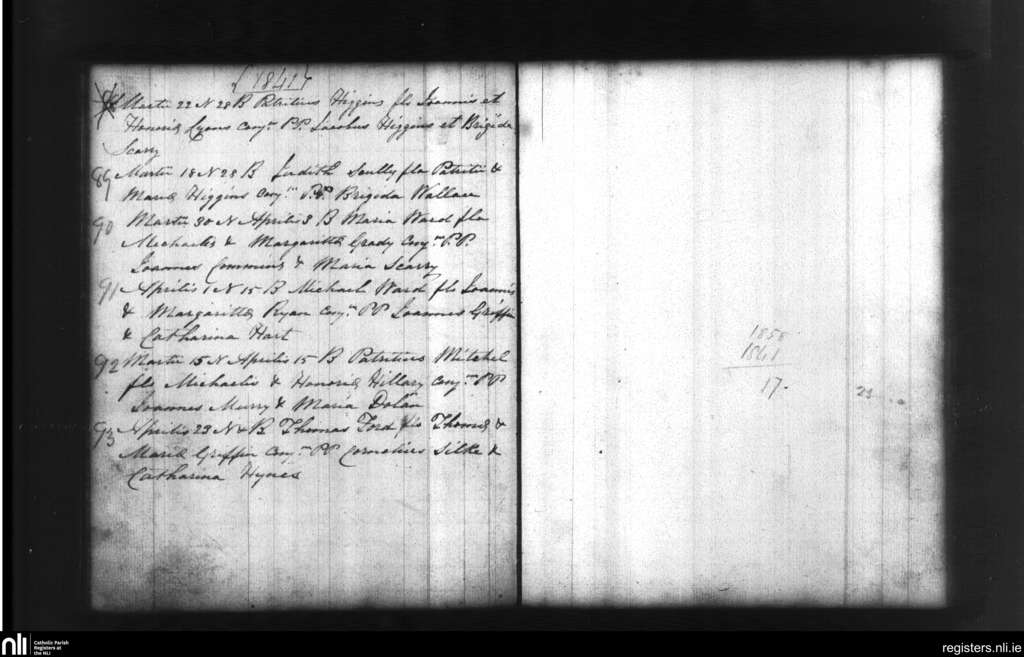 1841
Martii 22 N 28 B Patritius Higgins fls Joannis et
Honoriæ Lyons Conj. PP. Jacobus Higgins et Brigida
Scarry
89 Martii 18 N 28 B Judith Scully fla Patritii &
Mariæ Higgins Conj. P.P. Brigida Wallace
90 Martii 30 N Aprilis 3 B Maria Ward fla
Michaelis & Margarittæ Grady Conj. P.P.
Joannes Commins & Maria Scarry
91 Aprilis 1 N 15 B Michael Ward fls Joannis
& Margarittæ Ryan Conj. PP Joannes Griffin
& Catharina Hart
92 Martii 15 N Aprilis 15 B Patritius Mitchel
fls Michaelis & Honoriæ Hillary Conj. PP
Joannes Murry & Maria Dolan
93 Aprilis 23 N & B Thomas Ford fls Thomæ &
Mariæ Griffin Conj. PP Cornelius Silke &
Catharina Hynes
1858
1841
17.
23
nli Catholic Parish
Registers at
the NLI
registers.nli.ie